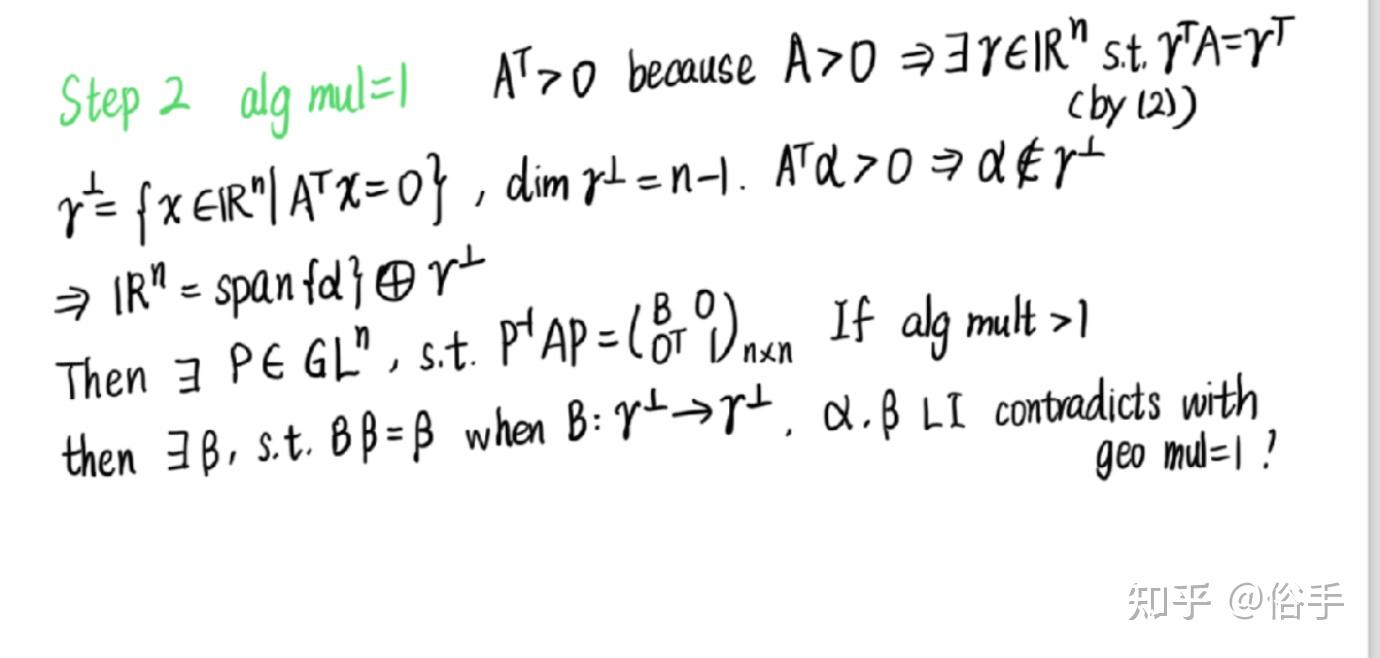 Step 2 alg mul=1 Aᵀ>0 because A>0 ⇒∃γ∈ℝⁿ s.t. γᵀA=γᵀ
(by (2))
γ^⊥={x∈ℝⁿ| Aᵀx=0}, dim γ^⊥=n-1. Aᵀα>0 ⇒ α∉γ^⊥
⇒ ℝⁿ = span{α}⊕γ^⊥
Then ∃ P∈GLⁿ, s.t. P⁻¹AP=(B 0; 0ᵀ 1)ₙₓₙ If alg mult >1
then ∃β, s.t. Bβ=β when B: γ^⊥→γ^⊥. α.β LI contradicts with
geo mul=1 !
知乎 @俗手